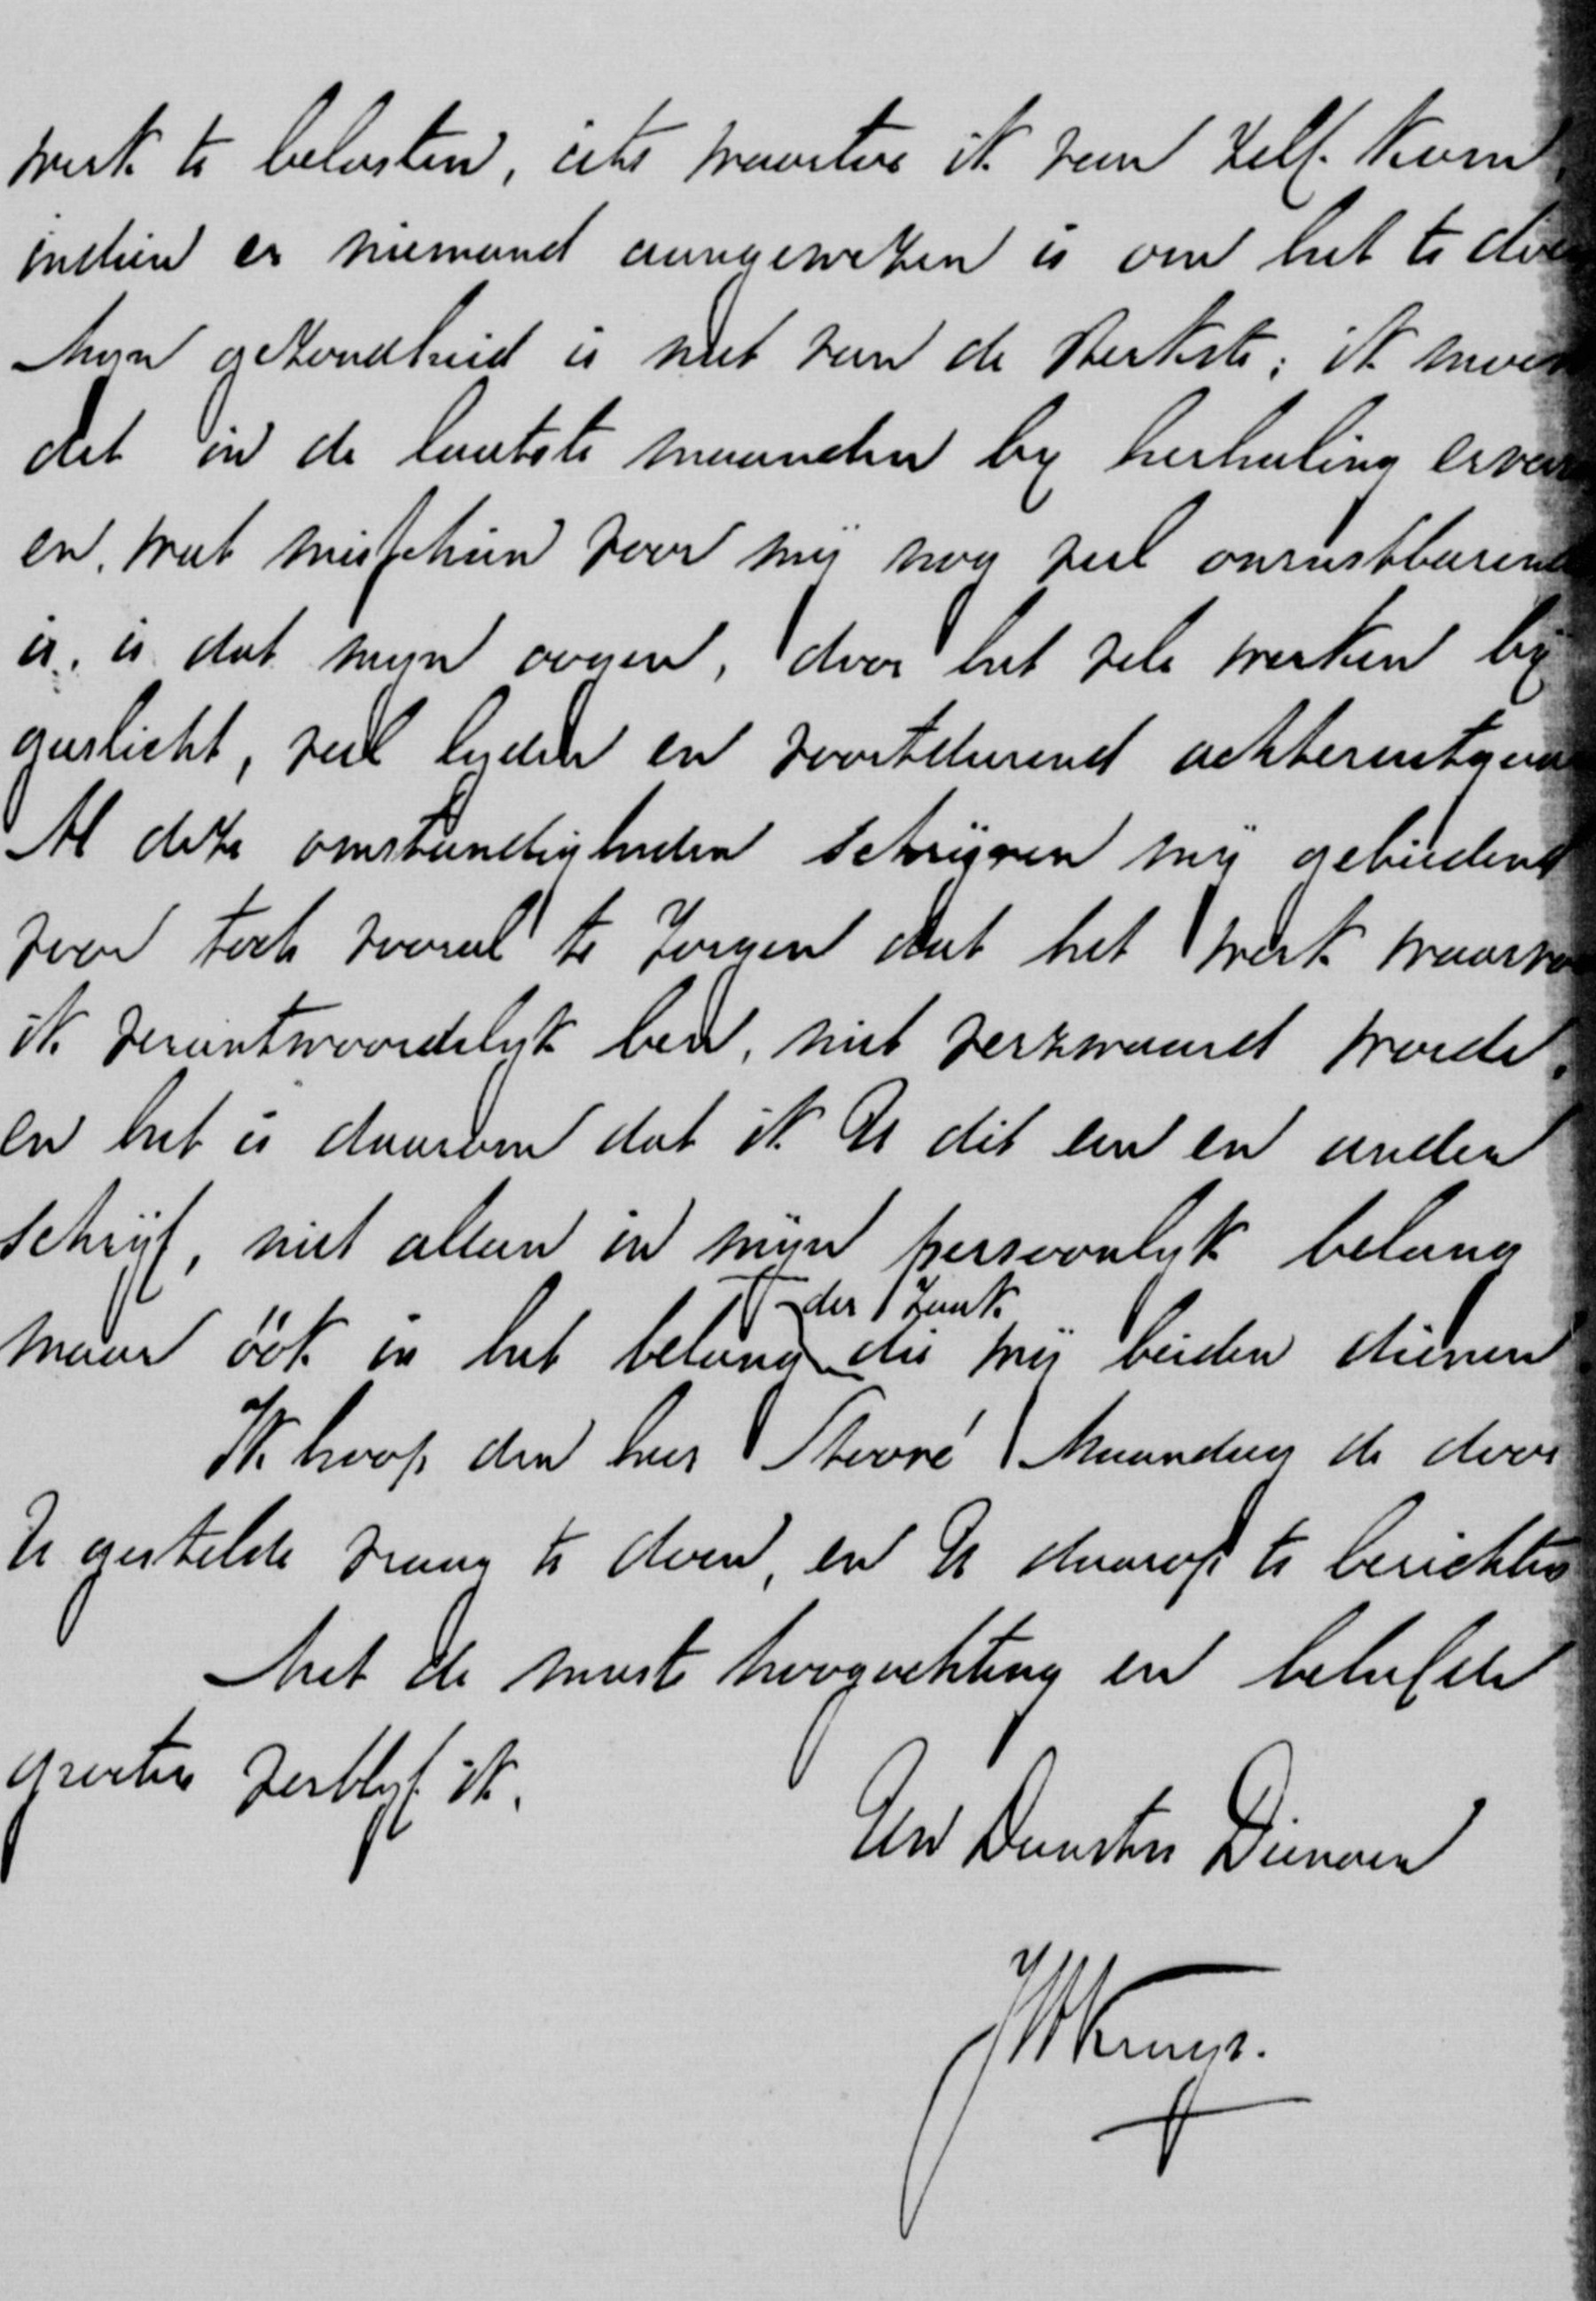 werk te belasten, iets waartoe ik van zelf kom,
indien er niemand aangewezen is om het te doen
Mijn gezondheid is niet van de sterkste; ik moest
dat in de laatste maanden bij herhaling ervaren
en, wat misschien voor mij nog veel onrustbarender
is, is dat mijn oogen, door het vele werken bij
gaslicht, veel lijden en voortdurend achteruitgaan
Al deze omstandigheden schrijven mij gebiedend
voor toch vooral te zorgen dat het werk waarvoor
ik verantwoordelijk ben, niet verzwaard worde,
en het is daarom dat ik U dit een en ander
schrijf, niet alleen in mijn persoonlijk belang
maar óók in het belang der zaak die wij beiden dienen
Ik hoop den heer Stoové Maandag de door
U gestelde vraag te doen, en U daarop te berichten
Met de meeste hoogachting en beleefde
groeten verblijf ik.
Uw Dienaar